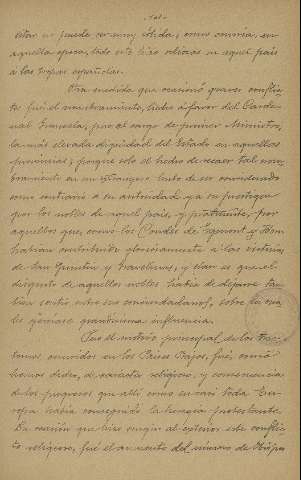 -101-
estar no puede ser muy sólida, como ocurría, en
aquella época, todo esto hizo odiosas en aquel país
á las tropas españolas.
Otra medida que ocasionó graves conflic-
tos fué el nombramiento, hecho á favor del Carde-
nal Granvela, para el cargo de primer Ministro,
la más elevada dignidad del Estado en aquellas
provincias; porque solo el hecho de recaer tal nom-
bramiento en un extranjero hubo de ser considerado
como contrario á su autoridad y a su prestigio
por los nobles de aquel país, y principalmente, por
aquellos que, como los Condes de Egmont y Horn
habían contribuido gloriosamente á las victorias
de San Quintín y Gravelinas, y claro es que el
disgusto de aquellos nobles había de dejarse tam-
bién sentir entre sus conciudadanos, sobre los cua-
les ejercían grandísima influencia.
Pero el motivo principal de los tras-
tornos ocurridos en los Países Bajos, fué, como
hemos dicho, de carácter religioso, y consecuencia
de los progresos que allí como en casi toda Eu-
ropa había conseguido la herejía protestante.
La ocasión que hizo surgir al exterior este conflic-
to religioso, fué el aumento del número de Obispa